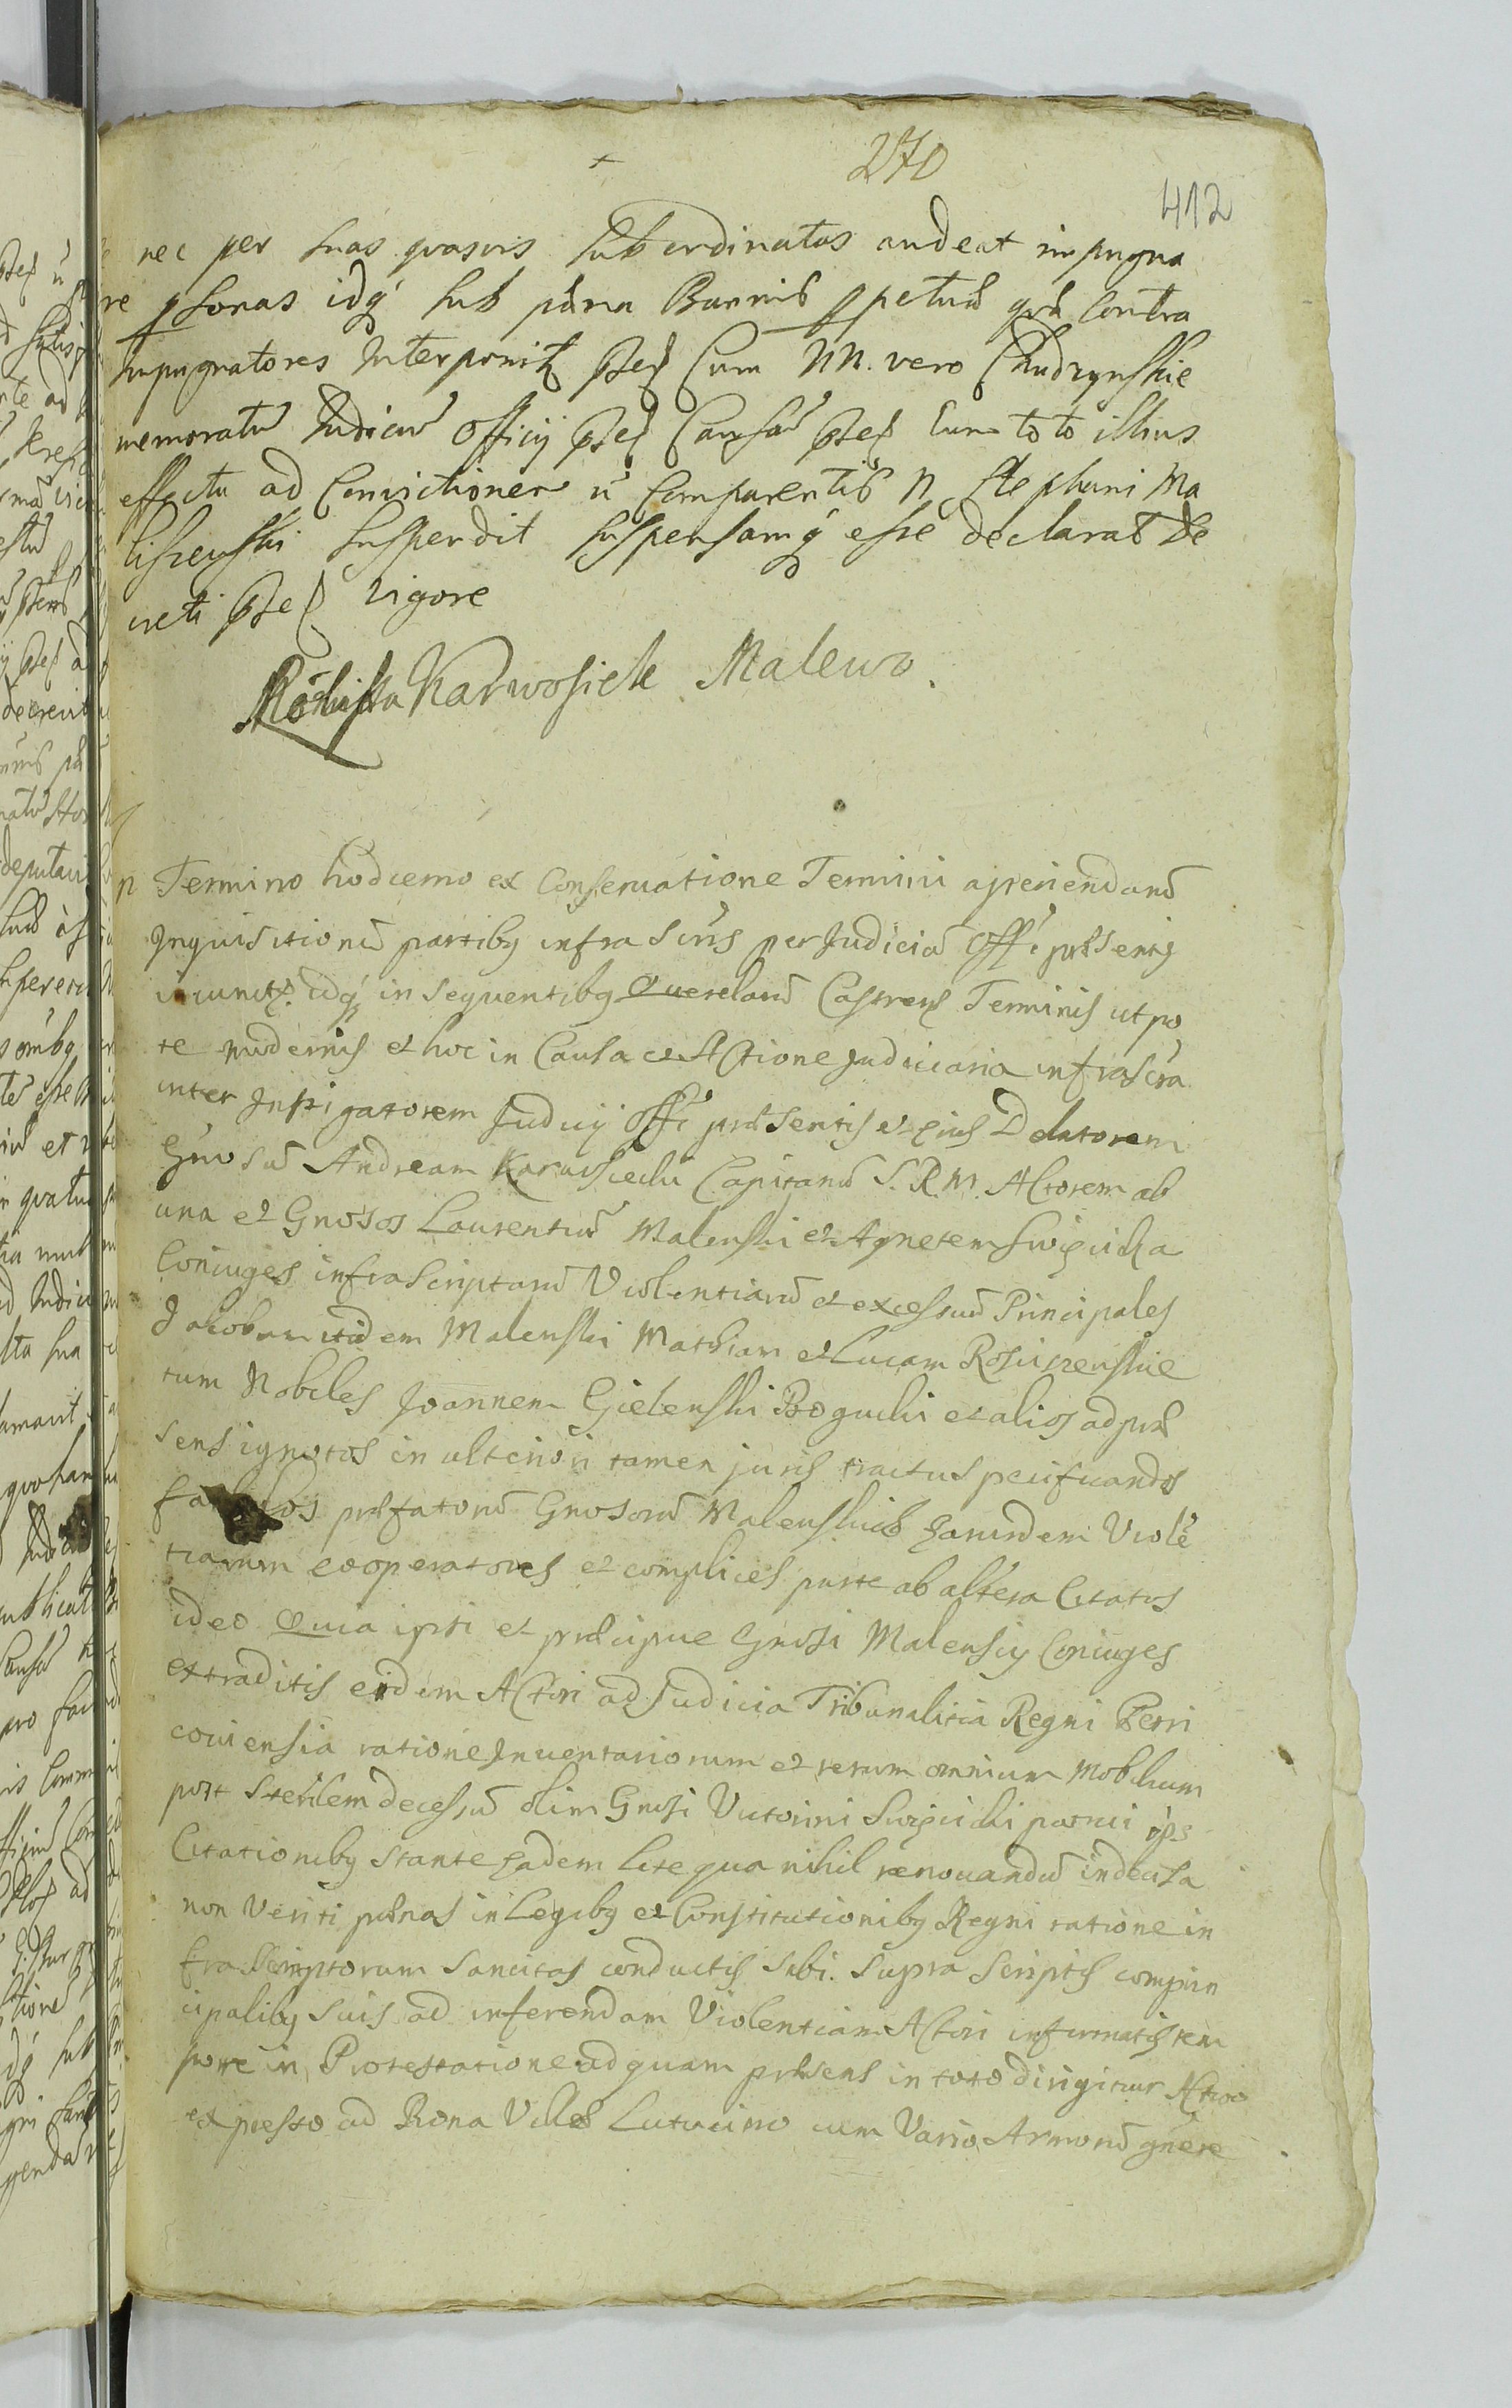 270
412
nec per suas quasvis subordinatas audeat impugna
re psonas idq sub pæna Bannis ppetuæ qrd contra
Impugnatores Interponit psef Cum NN. vero Chudzynskie
memoratū Iudiciū Officij psef Causā psef Cum toto illius
effectu ad Convictionem ñ Comparentis N Stephani Ma
liszewski suspendit suspensamq esse declarat De
creti psef vigore
Karwosiek Malewo.
Termino hodierno ex Conservatione Termini aperiendarū
Inquisitionū partiby infra Scris per Iudiciū Offi præsentis
idq in sequentiby Querelarū Castren Terminis utpo
te modernis et hoc in Causa et Actione Iudiciaria infrascra
inter Instigatorem Iudicij Offi præsentis et eius Delatorem
Gnosū Andream Karwosiecki Capitanū S. R. M. Actorem ab
una et Gnosos Laurentiū Malewski et Agnetem Swięcicka
Coniuges infrascriptarū Violentiarū et excessuū Principales
Jacobum itidem Malewski Mathiam et Lucam Rosciszewskie
tum Nobiles Joannem Gielewski Bogucki et alios ad præ
sens ignotos in ulteriori tamen juris tractu specificandos
præfatorū Gnosorū Malewskich earundem Violē
tiarum cooperatores et complices parte ab altera Citatos
ideo Quia ipsi et præcipue Gnosi Malewscy Coniuges
extraditis eidem Actori ad Iudicia Tribunalitia Regni Petri
coviensia ratione Inventariorum et rerum omnium Mobilium
post sterilem decessū olim Gnosi Victorini Swięcicki patrui
Citationiby stante eadem lite qua nihil renovandū indecisa
non veriti pænas in Legiby et Constitutioniby Regni ratione in
frascriptorum sancitas conductis sibi supra scriptis comprin
cipaliby suis ad inferendam Violentiam Actori infirmatis tem
pore in Protestatione ad quam præsens in toto dirigitur Actio
expresso ad Bona Villes Lutocino cum Vario Armorū gnere